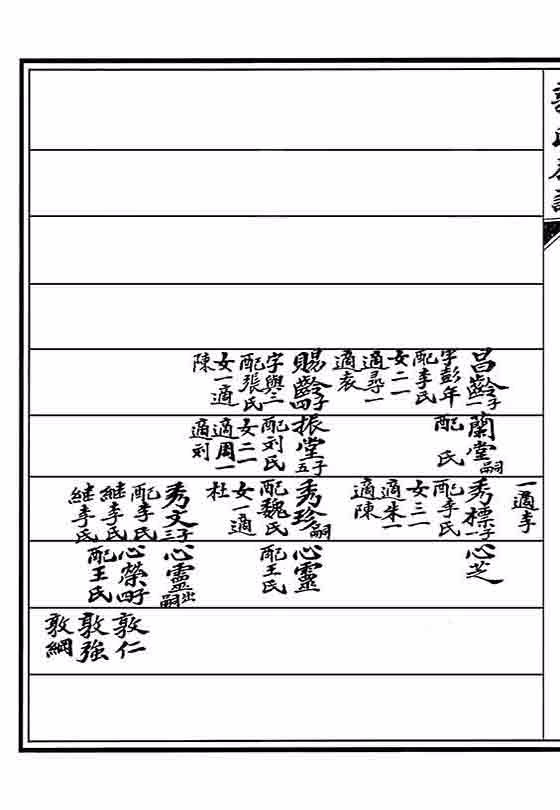 昌齡一子
字彭年
配李氏
女二一
適尋一
適袁
賜齡四子
字與三
配張氏
女一適
陳
蘭堂嗣
配 氏
振堂五子
配刘氏
女二一
適周一
適刘
一適李
秀標一子
配李氏
女三一
適朱一
適陳
秀珍嗣
配魏氏
女一適
杜
秀文三子
配李氏
継李氏
継李氏
心芝
心靈
配王氏
心靈出嗣
心榮四子
配王氏
敦仁
敦強
敦綱